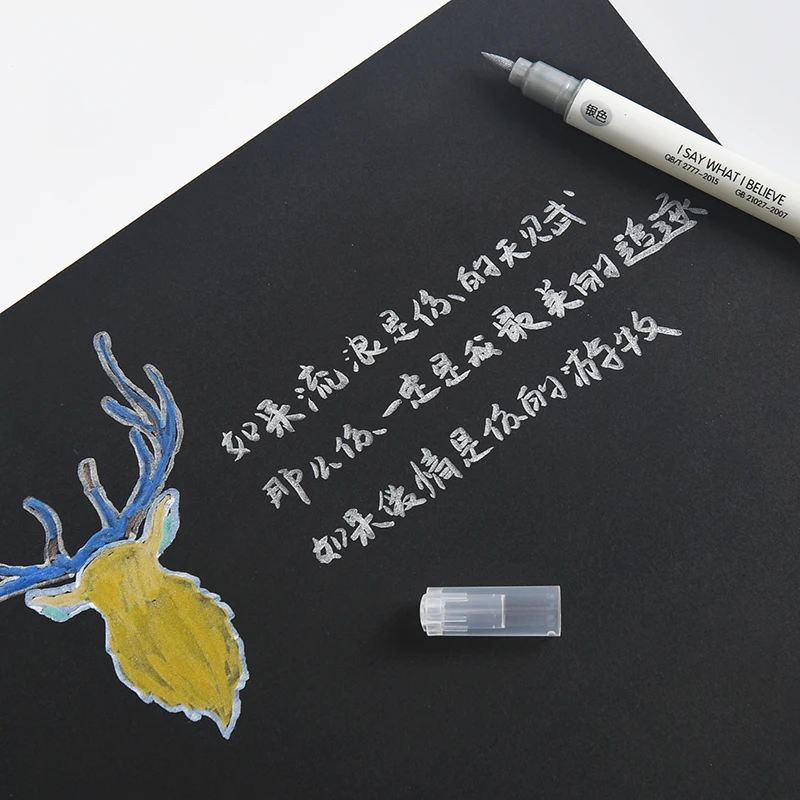 银色
I SAY WHAT I BELIEVE
GB/T 2777-2015 GB 21027-2007
如果流浪是你的天赋
那么你一定是我最美的追逐
如果傻情是你的游牧